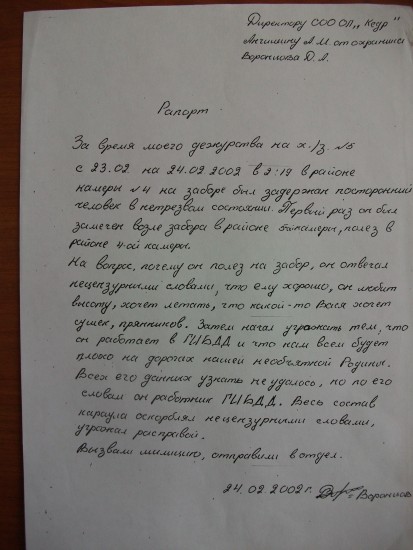 Директору ООО ОП „Кедр"
Анчилину А.М от охранника
Воронцова Д. А.
Рапорт
За время моего дежурства на х./з. №5
с 23.02. на 24.02.2002 в 2:19 в районе
камеры №4 на заборе был задержан посторонний
человек в нетрезвом состоянии. Первый раз он был
замечен возле забора в районе 5й камеры, полез в
районе 4-ой камеры.
На вопрос, почему он полез на забор, он отвечал
нецензурными словами, что ему хорошо, он любит
высоту, хочет летать, что какой-то Вася хочет
сушек, пряников. Затем начал угрожать тем, что
он работает в ГИБДД и что нам всем будет
плохо на дорогах нашей необъятной Родины.
Всех его данных узнать не удалось, но по его
словам он работник ГИБДД. Весь состав
караула оскорблял нецензурными словами,
угрожал расправой.
Вызвали милицию, отправили в отдел.
24.02.2002 г.